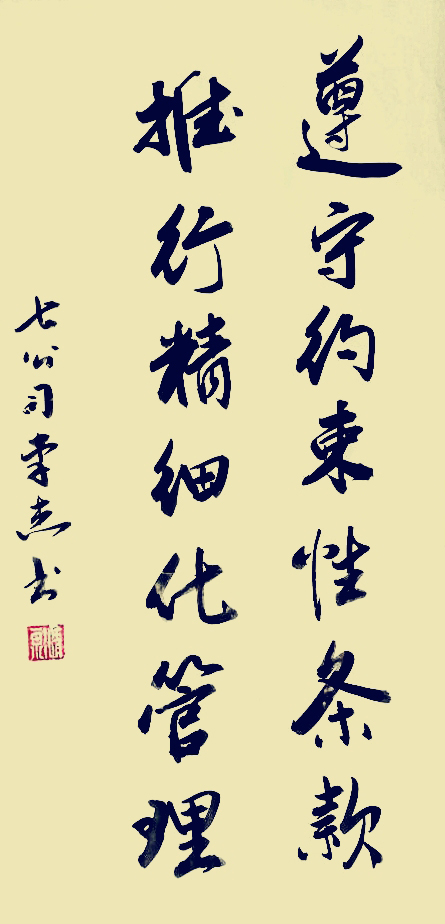 遵守约束性条款
推行精细化管理
七公司李杰书